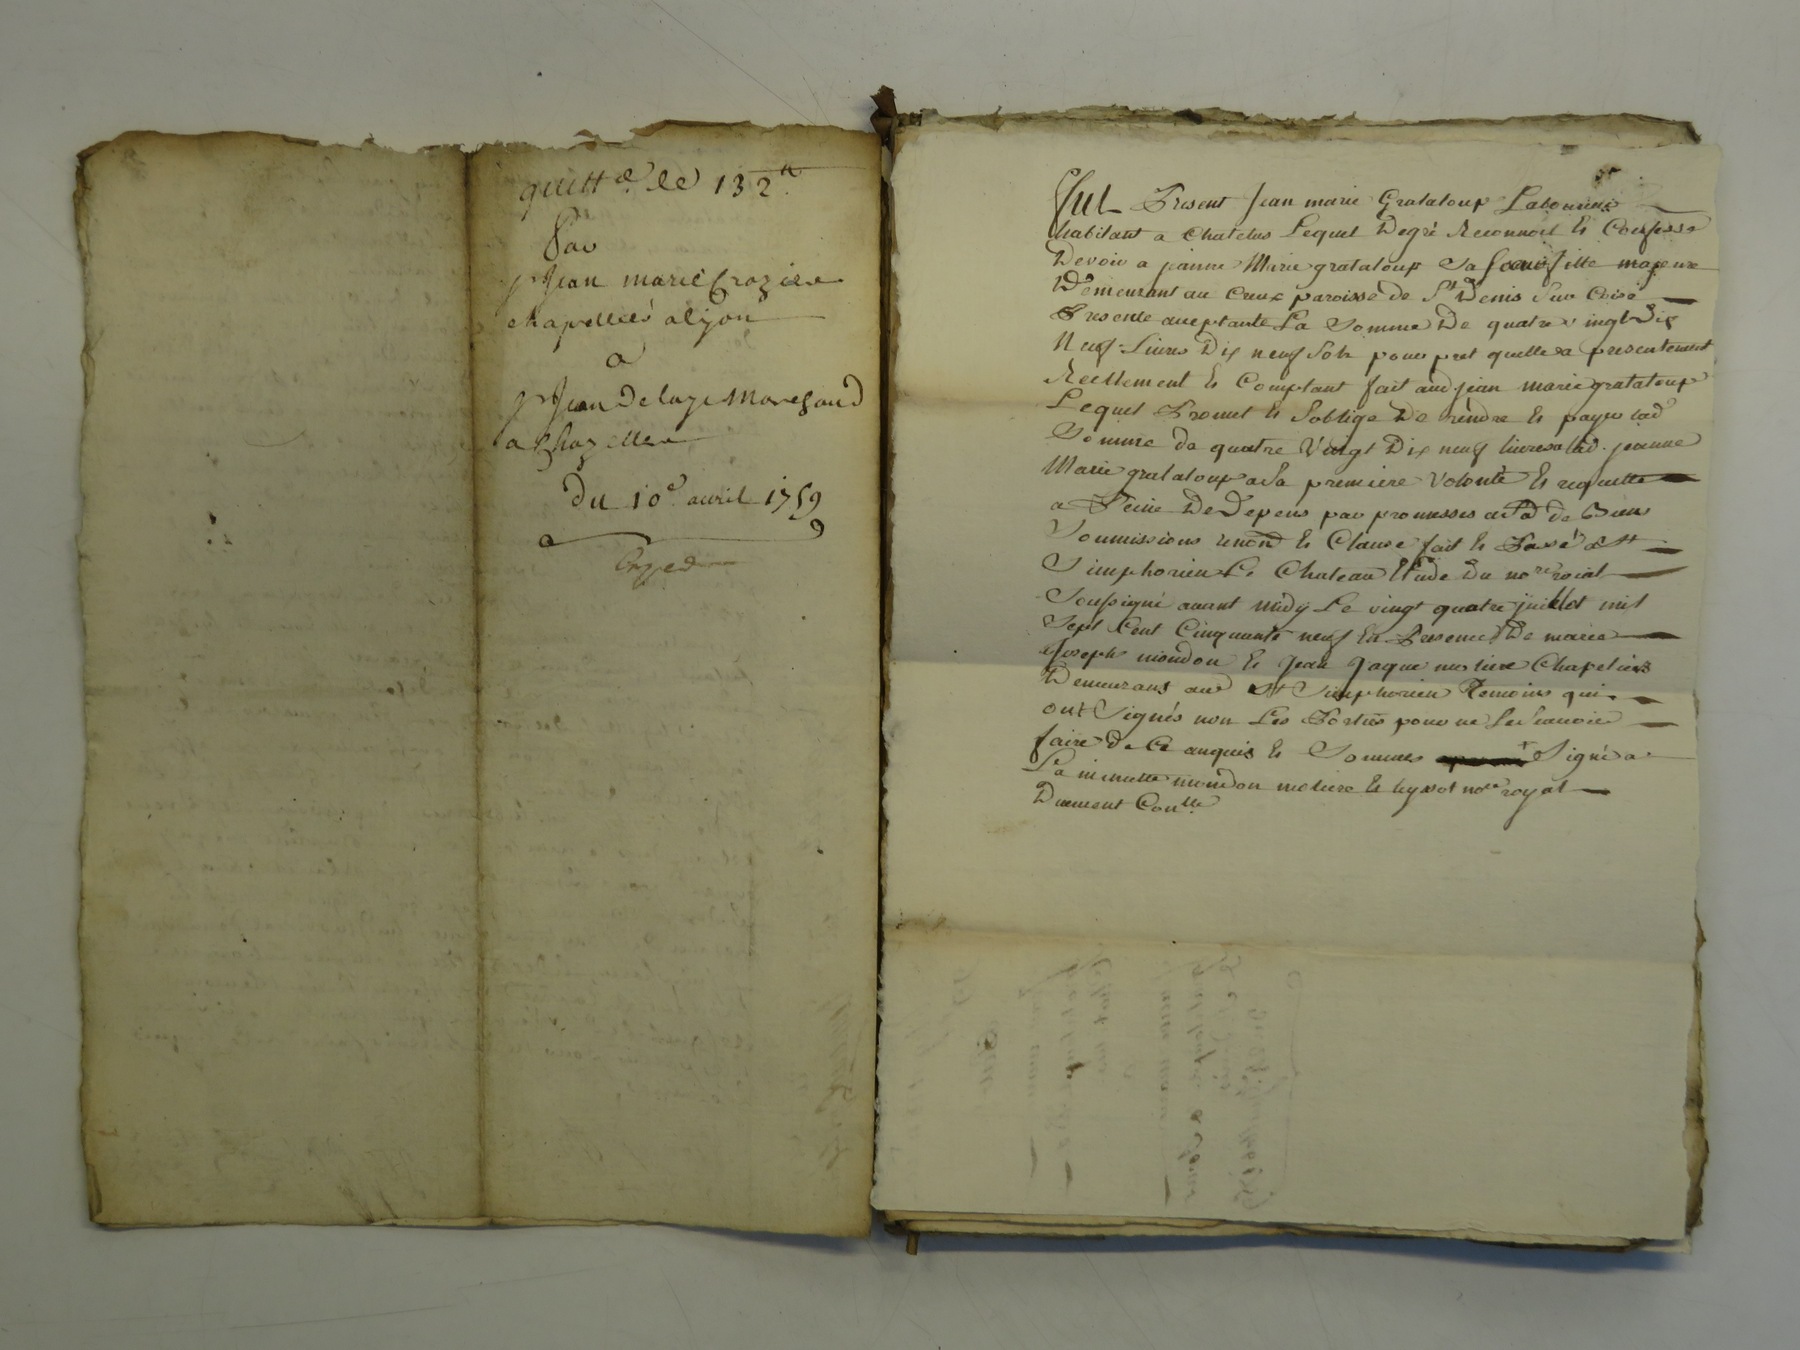 quitt.e de 132.tt
Par
sr Jean marie Crozier
chapellier a Lyon
a
sr Jean Delay Marchand
a Chazelle
Du 10.e avril 1759
Exped
Fut Present Jean marie Grataloup Laboureur
habitant a Chatelus Lequel Degré Reconnoit et Confesse
Devoir a jeanne Marie grataloup Sa fille majeure
Demeurant au Creux paroisse de St Denis Sur Coise
Presente acceptante La Somme De quatre vingt Dix
Neuf Livres Dix neuf Sols pour pret quelle a presentement
Reellement et Comptant fait aud jean marie grataloup
Lequel Promet et Soblige De rendre et payer lad
Somme de quatre Vingt Dix neuf livres a lad. jeanne
Marie grataloup a Sa premiere Volonté et requette
a Peine De Depens par promesses de Biens
Soumissions renond et Clause fait et Passé a St
Simphorien Le Chateau Etude Du nore roial
Soussigné avant midy Le vingt quatre juillet mil
Sept Cent Cinquante neuf En Presence De marie
Joseph mondon et Jean Jaque moliere Chapeliers
Demeurans aud St Simphorien Temoins qui
ont Signés non Les Parties pour ne Le Scavoir
faire De Ce enquis et Sommés Signé a
La minutte mondon moliere et nore royal
Duement Conllé